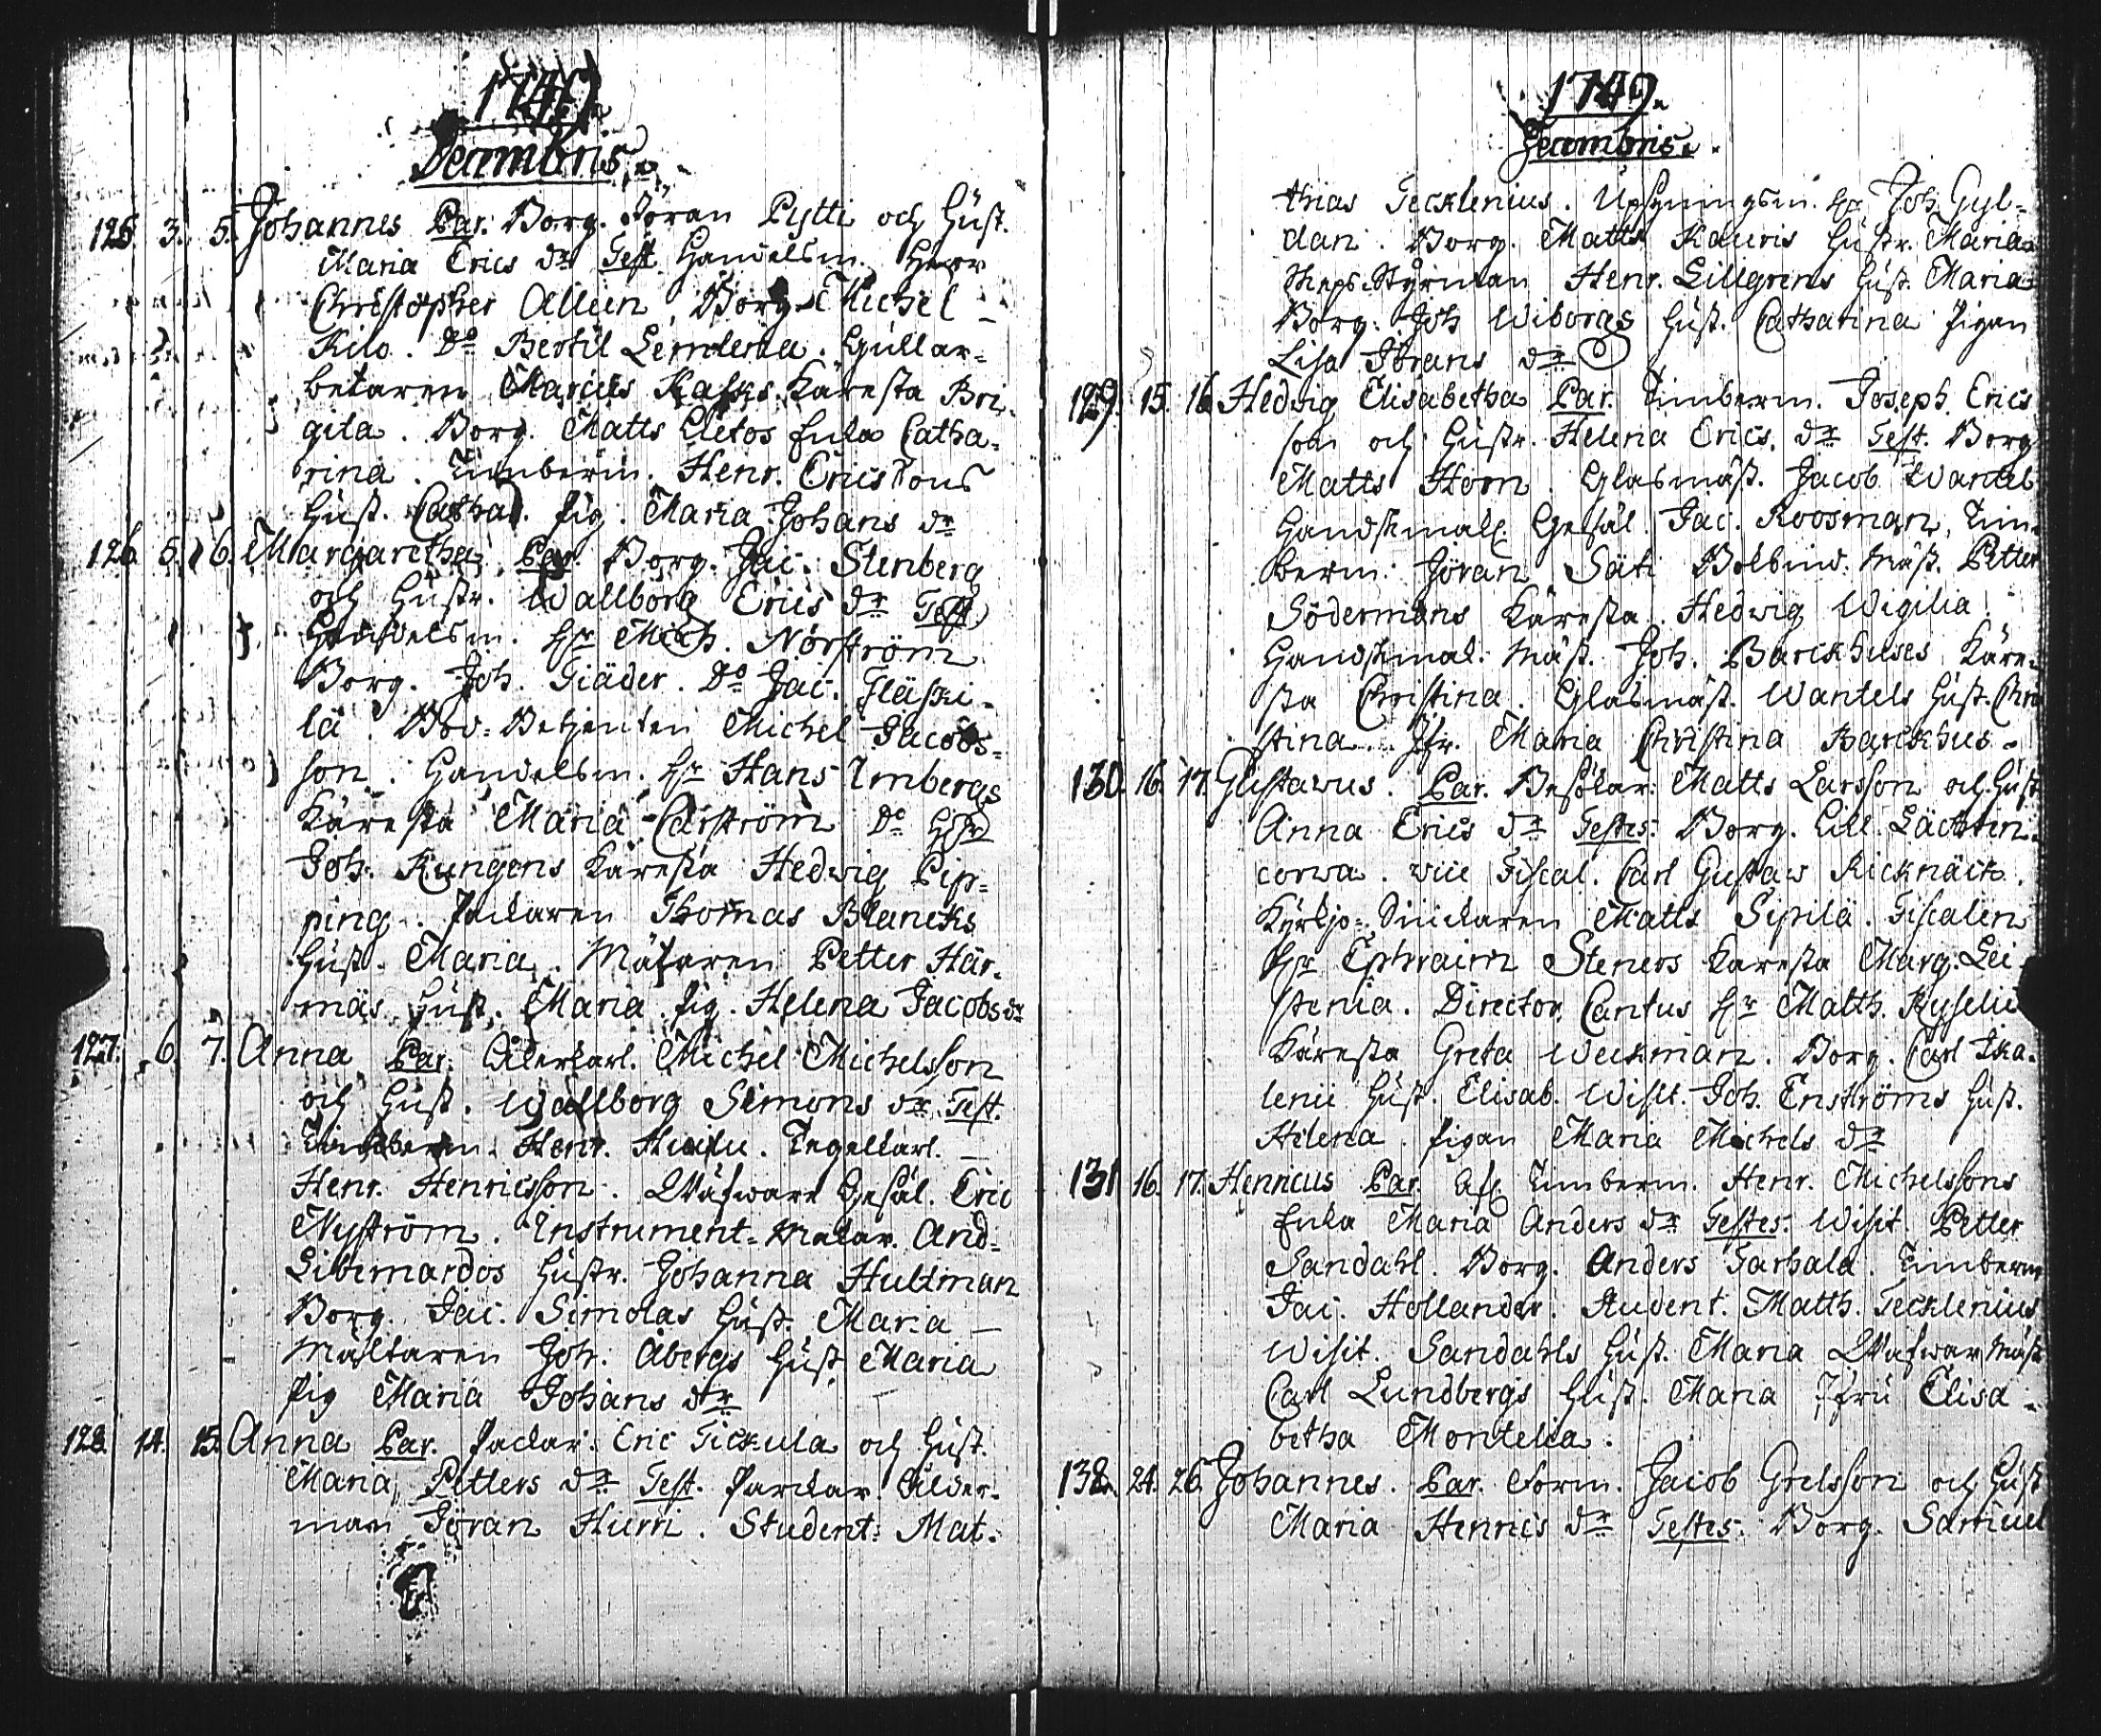 1749.
Decembris.
125. 3. 5. Johannes Par. Borg. Jöran Pytti och Hust.
Maria Erics dr Test. Handelsm. Herr
Christopher Allein, Borg. Michel
Kilo. Do Bertil Lemlena. Gullar=
betaren Marcus Kasks Käresta Bri=
gita. Borg. Matts Cletos Enka Catha=
rina. Timberm. Henr. Ericssons
Hust. Cathar. Pig. Maria Johans dr
126. 5. 6. Margaretha, Par. Borg. Jac. Stenberg
och Hustr. Wallborg Erics dr Test.
Handelsm. Hr Mich. Norström
Borg. Joh. Giäder. Do Jac. Fläski=
lä. Bod-Betjenten Michel Jacobs=
son. Handelsm. Hr Hans Imbergs
Käresta Maria Carström Do Hr
Joh. Kungens Käresta Hedwig Pip=
ping. Packaren Thomas Blancks
Hust. Maria. Mätaren Petter Här=
mäs Hust. Maria. Pig. Helena Jacobs dr
127. 6. 7. Anna Par. Åkerkarl. Michel Michelsson
och Hust. Wallborg Simons dr Test.
Timberm. Henr. Tegelkarl.
Henr. Henricsson. Wäfware Gesäl. Eric
Nyström. Instrument-Makar. And=
Libernardos Hustr. Johanna Hultman
Borg. Jac. Simolas Hust. Maria
Mältaren Joh. Åbergs Hust Maria
Pig Maria Johans dr
128. 14. 15. Anna Par. Packar. Eric Tickula och Hust.
Maria Petters dr Test. Packar. Ålder=
man Jöran Hurri. Student. Mat=
1749.
Decembris.
thias Tecklenius. Upsyningsm. Hr Joh. Gyl=
dan. Borg. Matts Kauris Hustr. Maria
Skeps-Styrman Henr. Lillgrens Hust. Maria
Borg. Joh Wiborgs Hust. Catharina Pigan
Lisa Jörans dr
129. 15. 16. Hedwig Elisabetha Par. Timberm. Joseph Erics
son och Hustr. Helena Erics dr Test. Borg
Matts Horn. Glasmäst. Jacob Wantel
Handskmak. Gesäl Jac. Roosman, Tim=
berm. Jöran Säti Bokbind. Mäst. Petter
Södermans Käresta Hedwig Wigilia
Handskmak. Mäst. Joh. Barckhuses Käre=
sta Christina. Glasmäst. Wantels Hust. Chri
stina. Jfr. Maria Christina Barckhus.
130. 16. 17. Gustavus. Par. Besökar. Matts Larsson och Hust
Anna Erics dr Testes. Borg. Lill. Lächten=
corwa. vice Fiscal. Carl Gustaw Ricknäik.
Kyrkjo- Matts Sipilä. Fiscalen
Hr Ephraim Steners Käresta Marg. Lei=
stenia. Director Cantus Hr Matth. Kyselii
Käresta Greta Weckman. Borg. Carl Ika=
lenii Hust. Elisab. Wisit. Joh. Enströms Hust.
Helena. Pigan Maria Michels dr
131 16. 17. Henricus Par. Afl. Timberm. Henr. Michelssons
Enka Maria Anders dr Testes. Wisit. Petter
Sandahl. Borg. Anders Tarhala. Timberm
Jac. Hollander. Student. Matth. Tecklenius
Wisit. Sandahls Hust. Maria Wäfwar Mäst
Carl Lundbergs Hust. Maria Jfru Elisa=
betha Montelia.
132. 24. 26. Johannes. Par. Form. Jacob Grelsson och Hust
Maria Henrics dr Testes. Borg. Samuel